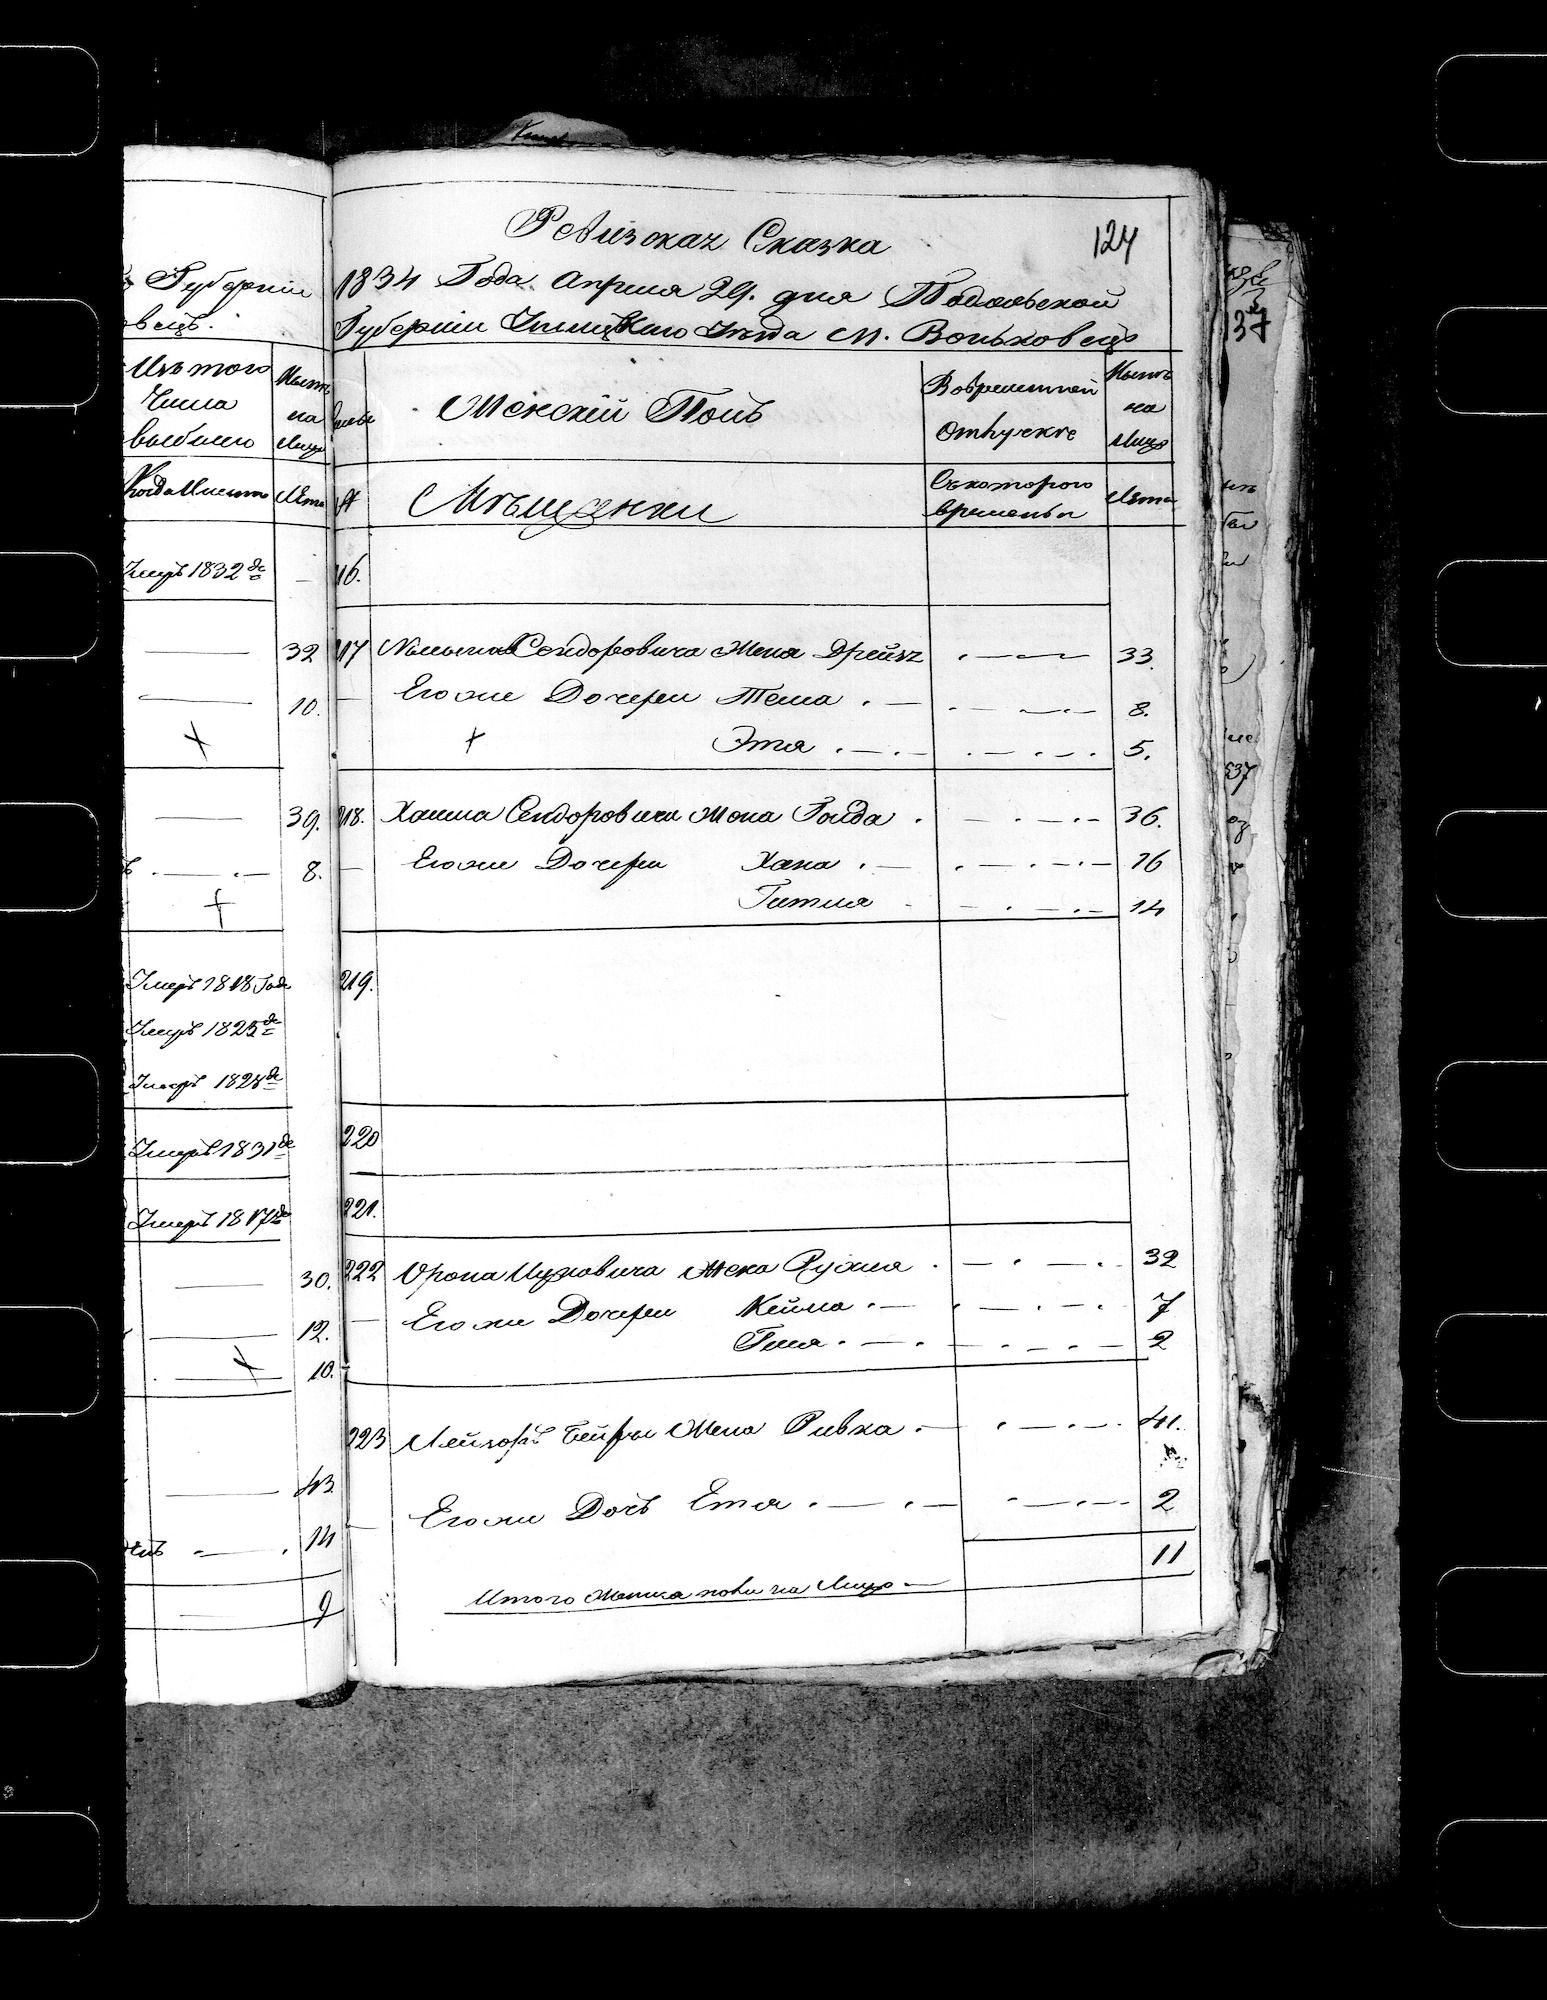 Губернiи
вецъ.
Изъ того
Числа
выбыло
Нынѣ
на
Лицо
Когда Именно
Лѣта
Умеръ 1832 де
32
10.
39.
8.
Умеръ 1818 Года
Умеръ 1825 де
Умеръ 1828 де
Умеръ 1831 де
Умеръ 1817 де
30.
12.
10.
43
14
9
Ревизская Сказка
124
1834 Года Апреля 29. дня Подольской
Губернiи Уѣзда М. Воньковецъ
Женскiй Полъ
Вовременной
Отлучкѣ
Нынѣ
на
Лицо
№
Мѣщанки
Съкоторого
временьи
Лѣта
216.
217 Сендоровича Жена Дрейзя 33.
Его же Дочери Тема 8.
Этя 5.
218. Хаима Сендоровича Жена Голда 36.
Его же Дочери Хана 16
Гитля 14
219.
220
221.
222 Орона Ицковича Жена Рухля 32
Его же Дочери Кейла 7
Геня 2
223 Лейзоръ Жена Ривка 41.
Его же Дочь Етя 2
11
Итого Женска пола на Лицо
137